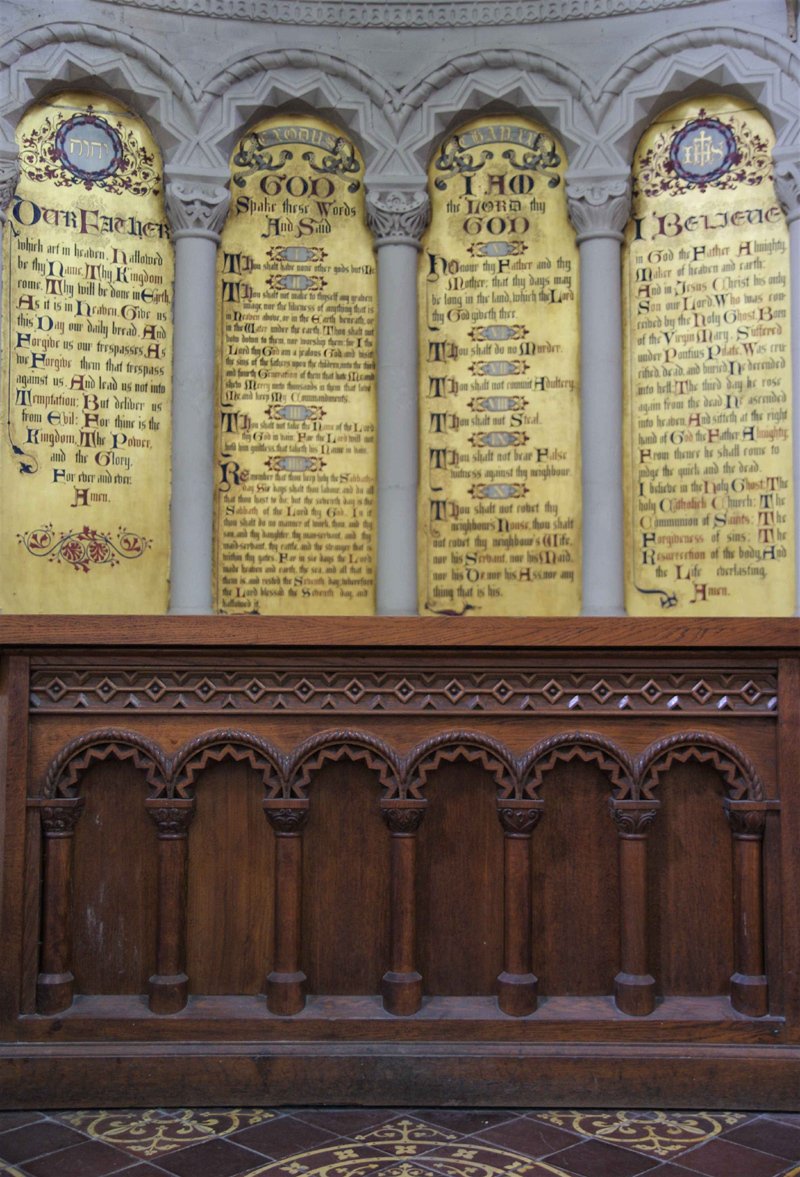 יהוה
Our Father
which art in heaven. Hallowed
be thy Name. Thy Kingdom
come. Thy will be done in Earth,
As it is in Heaven. Give us
this Day our daily bread. And
Forgive us our trespasses. As
we Forgive them that trespass
against us. And lead us not into
Temptation: But deliver us
from Evil: For thine is the
Kingdom, The Power,
and the Glory,
For ever and ever.
Amen.
Exodus
GOD
Spake these Words
And Said
I
Thou shalt have none other gods but Me.
II
Thou shalt not make to thyself any graven
image, nor the likeness of anything that is
in Heaven above, or in the Earth beneath, or
in the Water under the earth. Thou shalt not
bow down to them, nor worship them: for I the
Lord thy God am a jealous God and visit
the sins of the fathers upon the children, unto the third
and fourth Generation of them that hate Me and
shew Mercy unto thousands in them that love
Me and keep My Commandments.
III
Thou shalt not take the Name of the Lord
thy God in vain. For the Lord will not
hold him guiltless, that taketh his Name in vain.
IIII
Remember that thou keep holy the Sabbath-
day. Six days shalt thou labour, and do all
that thou hast to do; but the seventh day is the
Sabbath of the Lord thy God. In it
thou shalt do no manner of work, thou, and thy
son, and thy daughter, thy man-servant, and thy
maid-servant, thy cattle, and the stranger that is
within thy gates. For in six days the Lord
made heaven and earth, the sea, and all that in
them is, and rested the Seventh day, wherefore
the Lord blessed the Seventh day, and
hallowed it.
I AM
the LORD thy
GOD
V
Honour thy Father and thy
Mother; that thy days may
be long in the land, which the Lord
thy God giveth thee.
VI
Thou shalt do no Murder.
VII
Thou shalt not commit Adultery.
VIII
Thou shalt not Steal.
IX
Thou shalt not bear False
witness against thy neighbour.
X
Thou shalt not covet thy
neighbour's House, thou shalt
not covet thy neighbour's Wife,
nor his Servant, nor his Maid,
nor his Ox, nor his Ass, nor any
thing that is his.
IHS
I Believe
in God the Father Almighty,
Maker of heaven and earth:
And in Jesus Christ his only
Son our Lord, Who was con-
ceived by the Holy Ghost, Born
of the Virgin Mary. Suffered
under Pontius Pilate, Was cru-
cified, dead, and buried, He descended
into hell; The third day he rose
again from the dead, He ascended
into heaven, And sitteth at the right
hand of God the Father Almighty,
From thence he shall come to
judge the quick and the dead.
I believe in the Holy Ghost; The
holy Catholick Church; The
Communion of Saints; The
Forgiveness of sins; The
Resurrection of the body, And
the Life everlasting,
Amen.